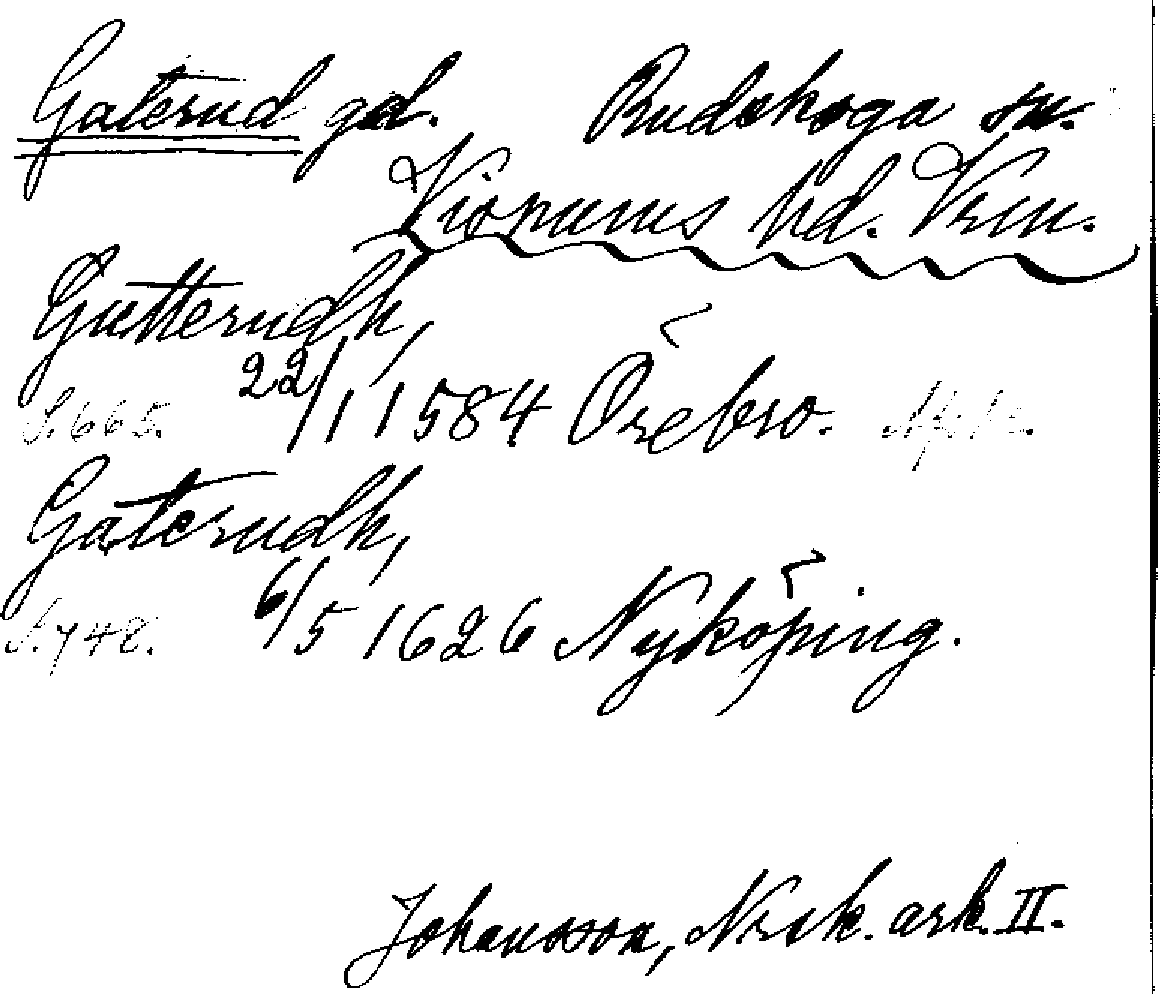 Gaterud gd. Rudskoga sn.
Visnums hd. Vrm.
Gutterudh,
S. 665. 22/1 1584 Örebro.
Gaterudh,
S. 748. 6/5 1626 Nyköping.
Johansson, Nrck. ark. II.